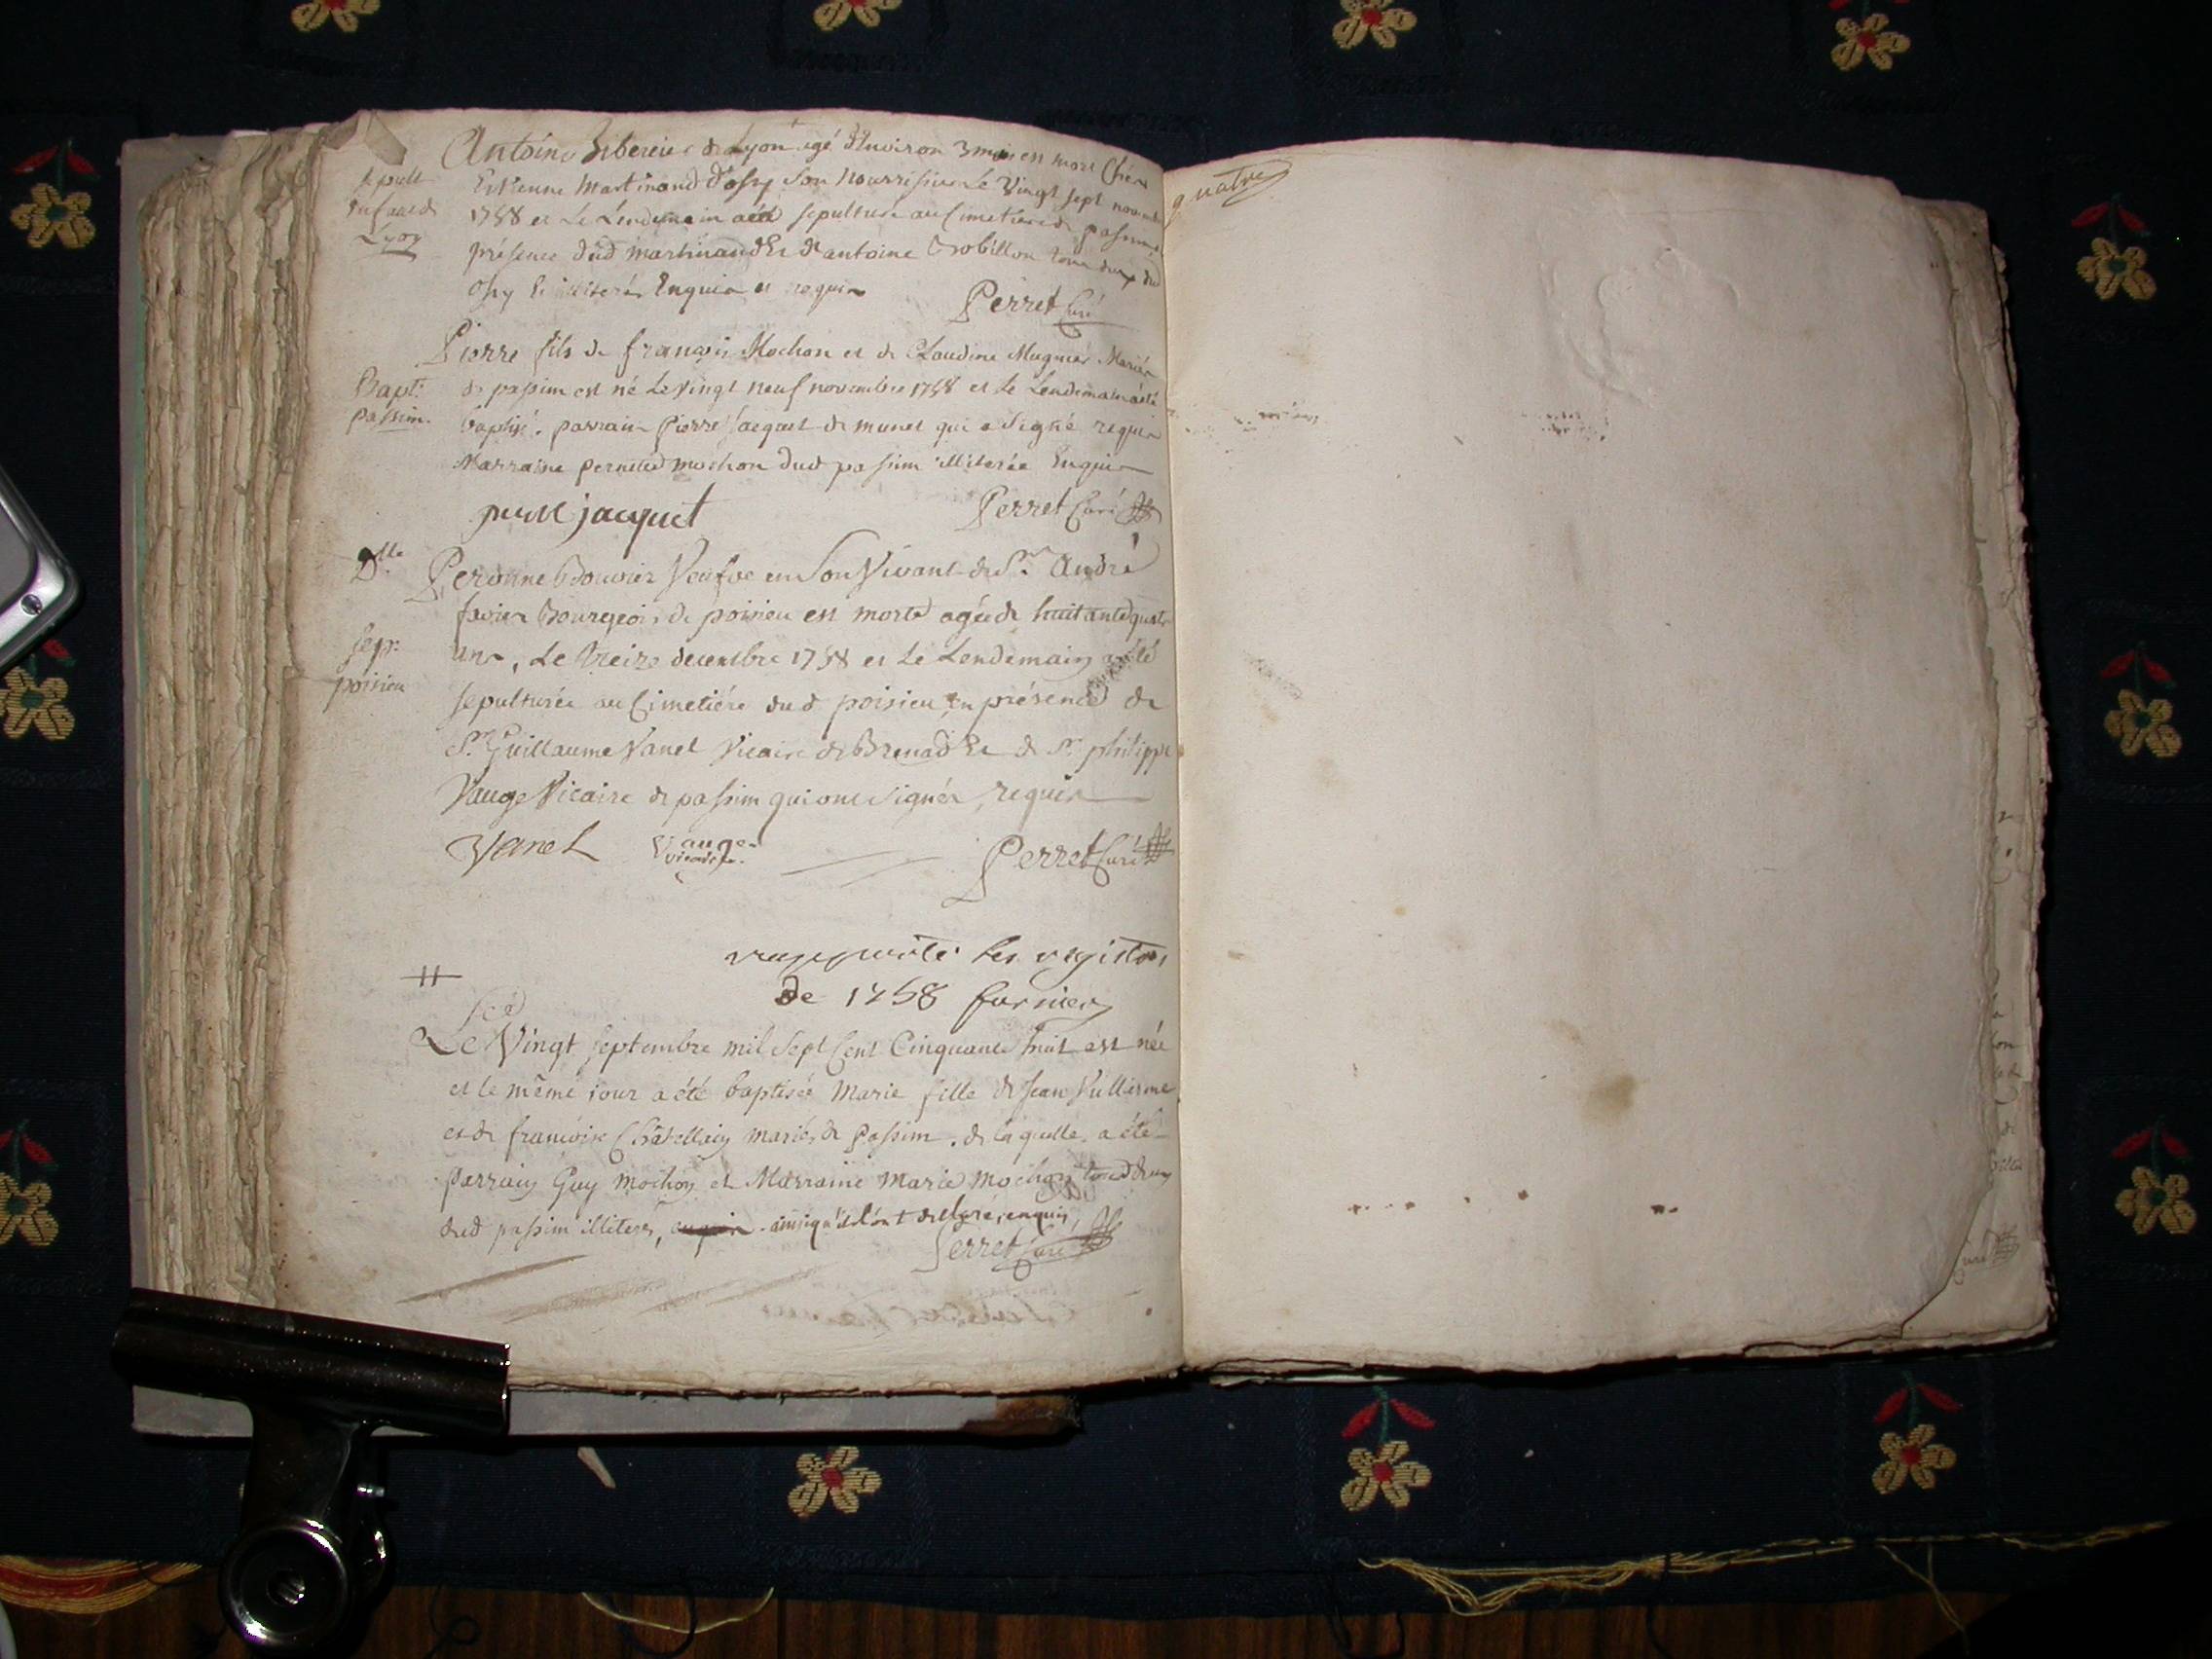 Antoine de Lyon agé d'Environ 3 mois est mort Chés
sepult.
Estienne Martinand d'ossy son nourrissier Le Vingt sept novembre
enfant de
1758 et Le Lendemain a été sepulturé au Cimetiére de passim
Lyon
présence dud martinand Et d'antoine Robillon tous deux dud
ossy Et illiterés Enquis et requis
Perret Curé
Pierre fils de françois Mochon et de Claudine Mugnier Mariés
Bapt.
de passim est né Le Vingt neuf novembre 1758 et le Lendemain a été
passim.
baptisé. parrain Pierre Jacquet de munet qui a signé requis
Marraine pernette mochon dud passim illiterée Enquise
pierre jacquet
Perret Curé
Dlle
Peronne Bouvier Veufve en Son Vivant de Sr. André
favier Bourgeois de poisieu est morte agée de huitante quatre
sep.
ans, Le Treize decembre 1758 et Le Lendemain a été
poisieu
sepulturée au Cimetiére dud poisieu En présence de
Sr. Guillaume Vanel Vicaire de Brenad Et de Sr. philippe
Vauge Vicaire de passim qui ont signés, requis
Vanel
Vauge
vicaire.
Perret Curé
les registres
de 1758
Le Vingt septembre mil Sept Cent Cinquante huit est née
et le même jour a été baptisée Marie fille de Jean Vullierme
et de françoise Châtellain mariés de Passim. de laquelle a été
Parrain Guy mochon et Marraine Marie mochon tous deux
dud passim illiterés, ainsi qu'ils l'ont declaré, enquis,
Perret Curé
quatre